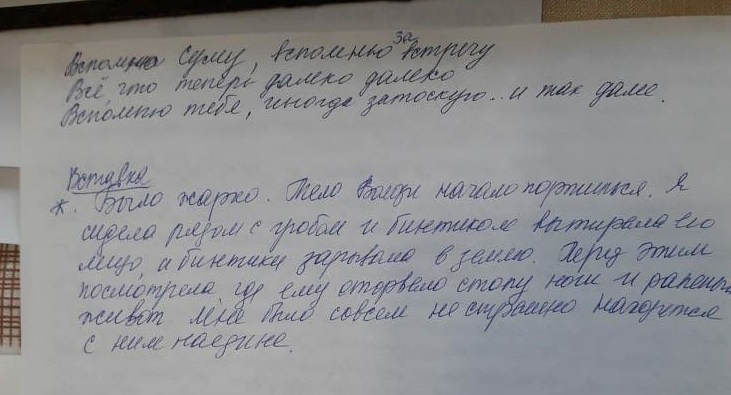 Вспомню Суму, вспомню за встречу
Всё, что теперь далеко далеко
Вспомню тебя, иногда затоскую.. и так далее.
Вставка
*. Было жарко. Тело Володи начало портиться. Я
сидела рядом с гробом и бинтиком вытирала его
лицо, а бинтики зарывала в землю. Перед этим
посмотрела где ему оторвало стопу ноги и ранение
живот. Мне было совсем не страшно находится
с ним наедине.